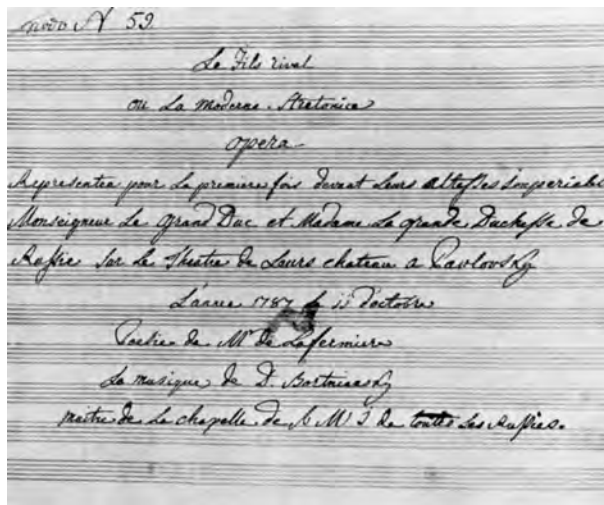 N 59.
Le Fils rival
ou La moderne Stratonice
opera
Representée pour La premiere fois devant Leurs Altesses Imperiales
Monseigneur Le Grand Duc et Madame La grande Duchesse de
Russie sur Le Theatre de Leurs chateau a Pavlovsky
L'annee 1787 le 11 d'octobre
Poesie de Mr de Lafermiere
La musique de D. Bortniansky
maitre de La chapelle de S M I de toutes Les Russies.